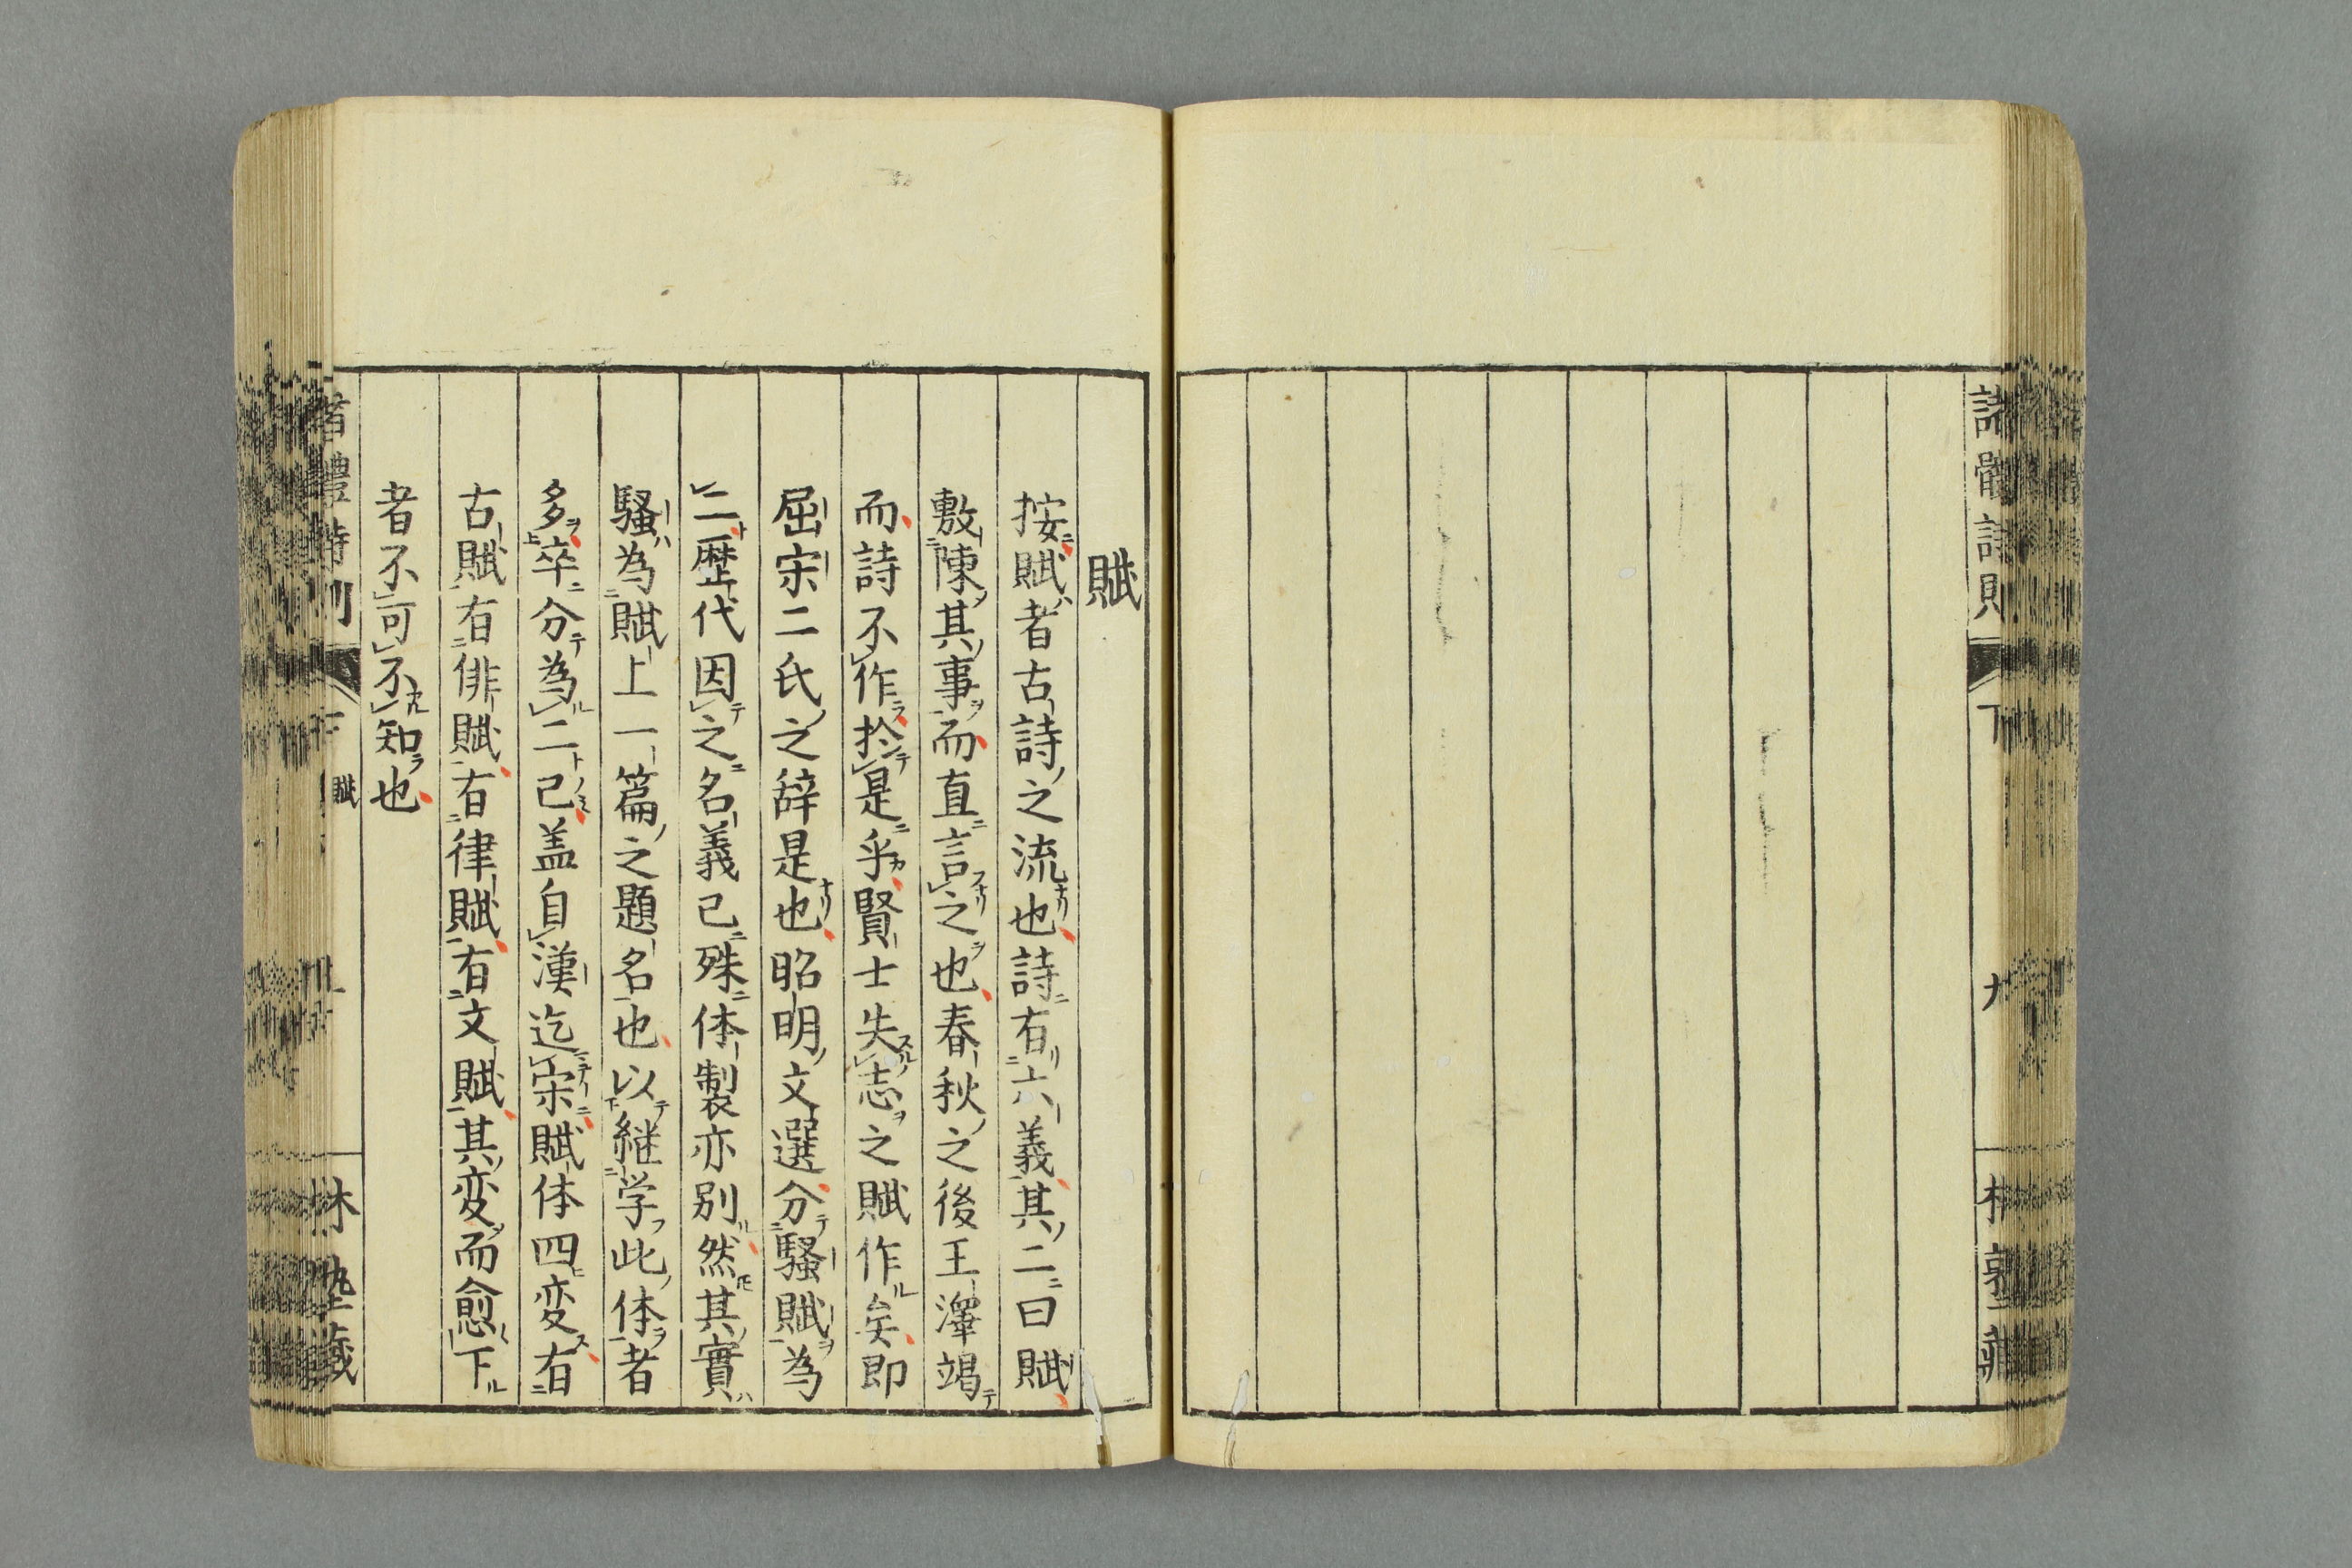 賦
按賦者古詩之流也詩有六義其二曰賦
敷陳其事而直言之也春秋之後王澤竭
而詩不作於是乎賢士失志之賦作矣即
屈宋二氏之辞是也昭明文選分騷賦為
二歴代因之名義已殊体製亦別然其實
騷為賦上一篇之題名也以継学此体者
多卒分為二已盖自漢迄宋賦体四変有
古賦有俳賦有律賦有文賦其変而愈下
者不可不知也
賦